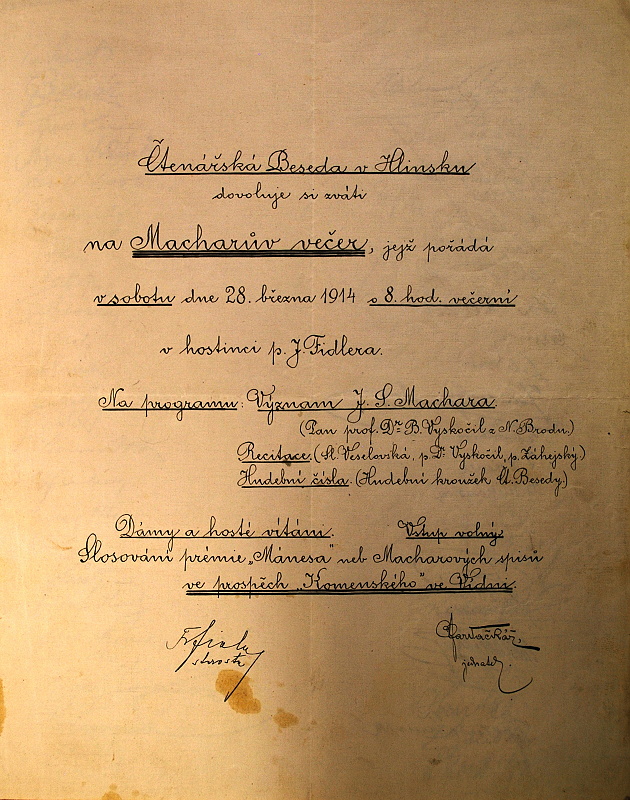 Čtenářská Beseda v Hlinsku
dovoluje si zváti
na Macharův večer, jejž pořádá
v sobotu dne 28. března 1914 o 8. hod. večerní
v hostinci p. J. Fidlera.
Na programu: Význam J. S. Machara.
(Pan prof. Dr. B. Vyskočil z N. Brodu.)
Recitace. (Sl. Veselovská, p. Dr. Vyskočil, p. Záhejský.)
Hudební čísla. (Hudební kroužek Čt. Besedy.)
Dámy a hosté vítáni. Vstup volný.
Slosování prémie „Mánesa" neb Macharových spisů
ve prospěch „Komenského" ve Vídni.
starosta jednatel.